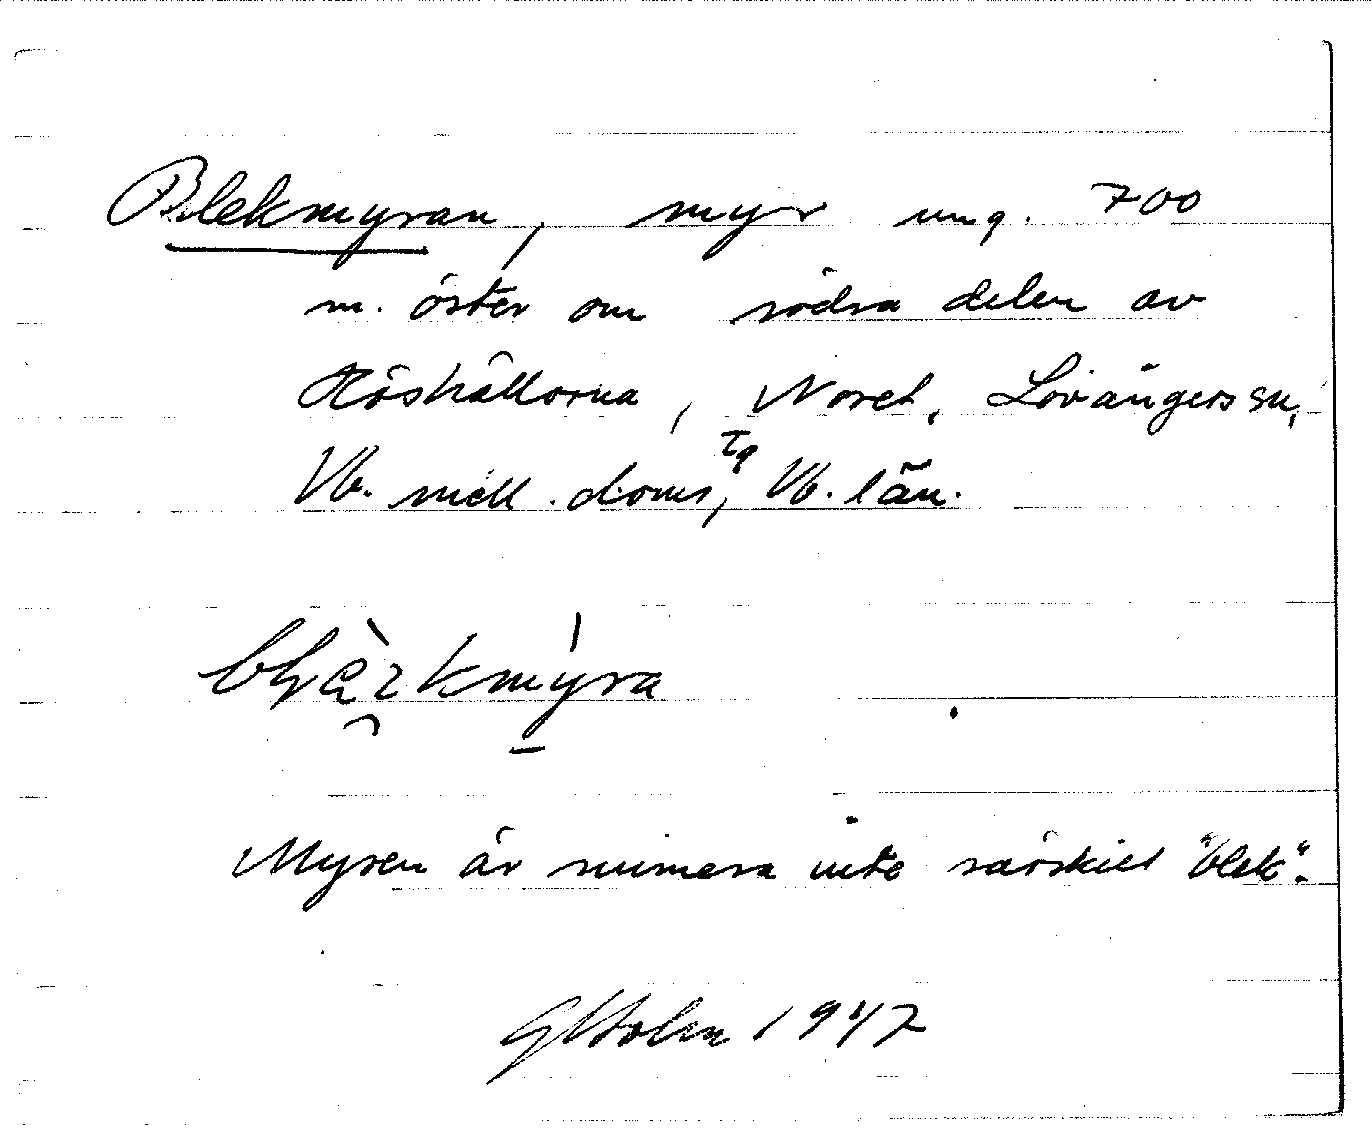 Blekmyran, myr ung. 700
m. öster om södra delen av
Höshällorna, Noret, Lövångers sn,
Vb. mell. doms tg, Vb. län.
Myren är numera inte särskilt "blek".
G Holm 1947